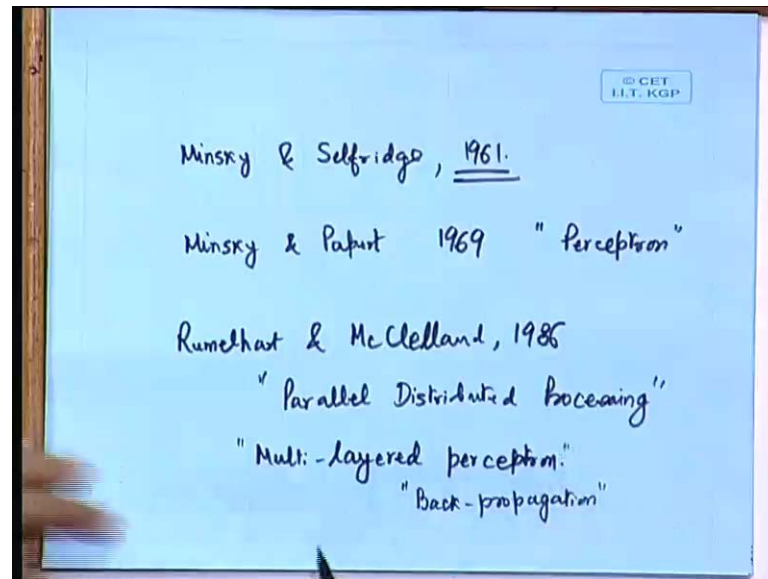 © CET
I.I.T. KGP
Minsky & Selfridge, 1961.
Minsky & Papert 1969 "Perceptron"
Rumelhart & McClelland, 1986
"Parallel Distributed Processing"
"Multi-layered perceptron."
"Back-propagation"